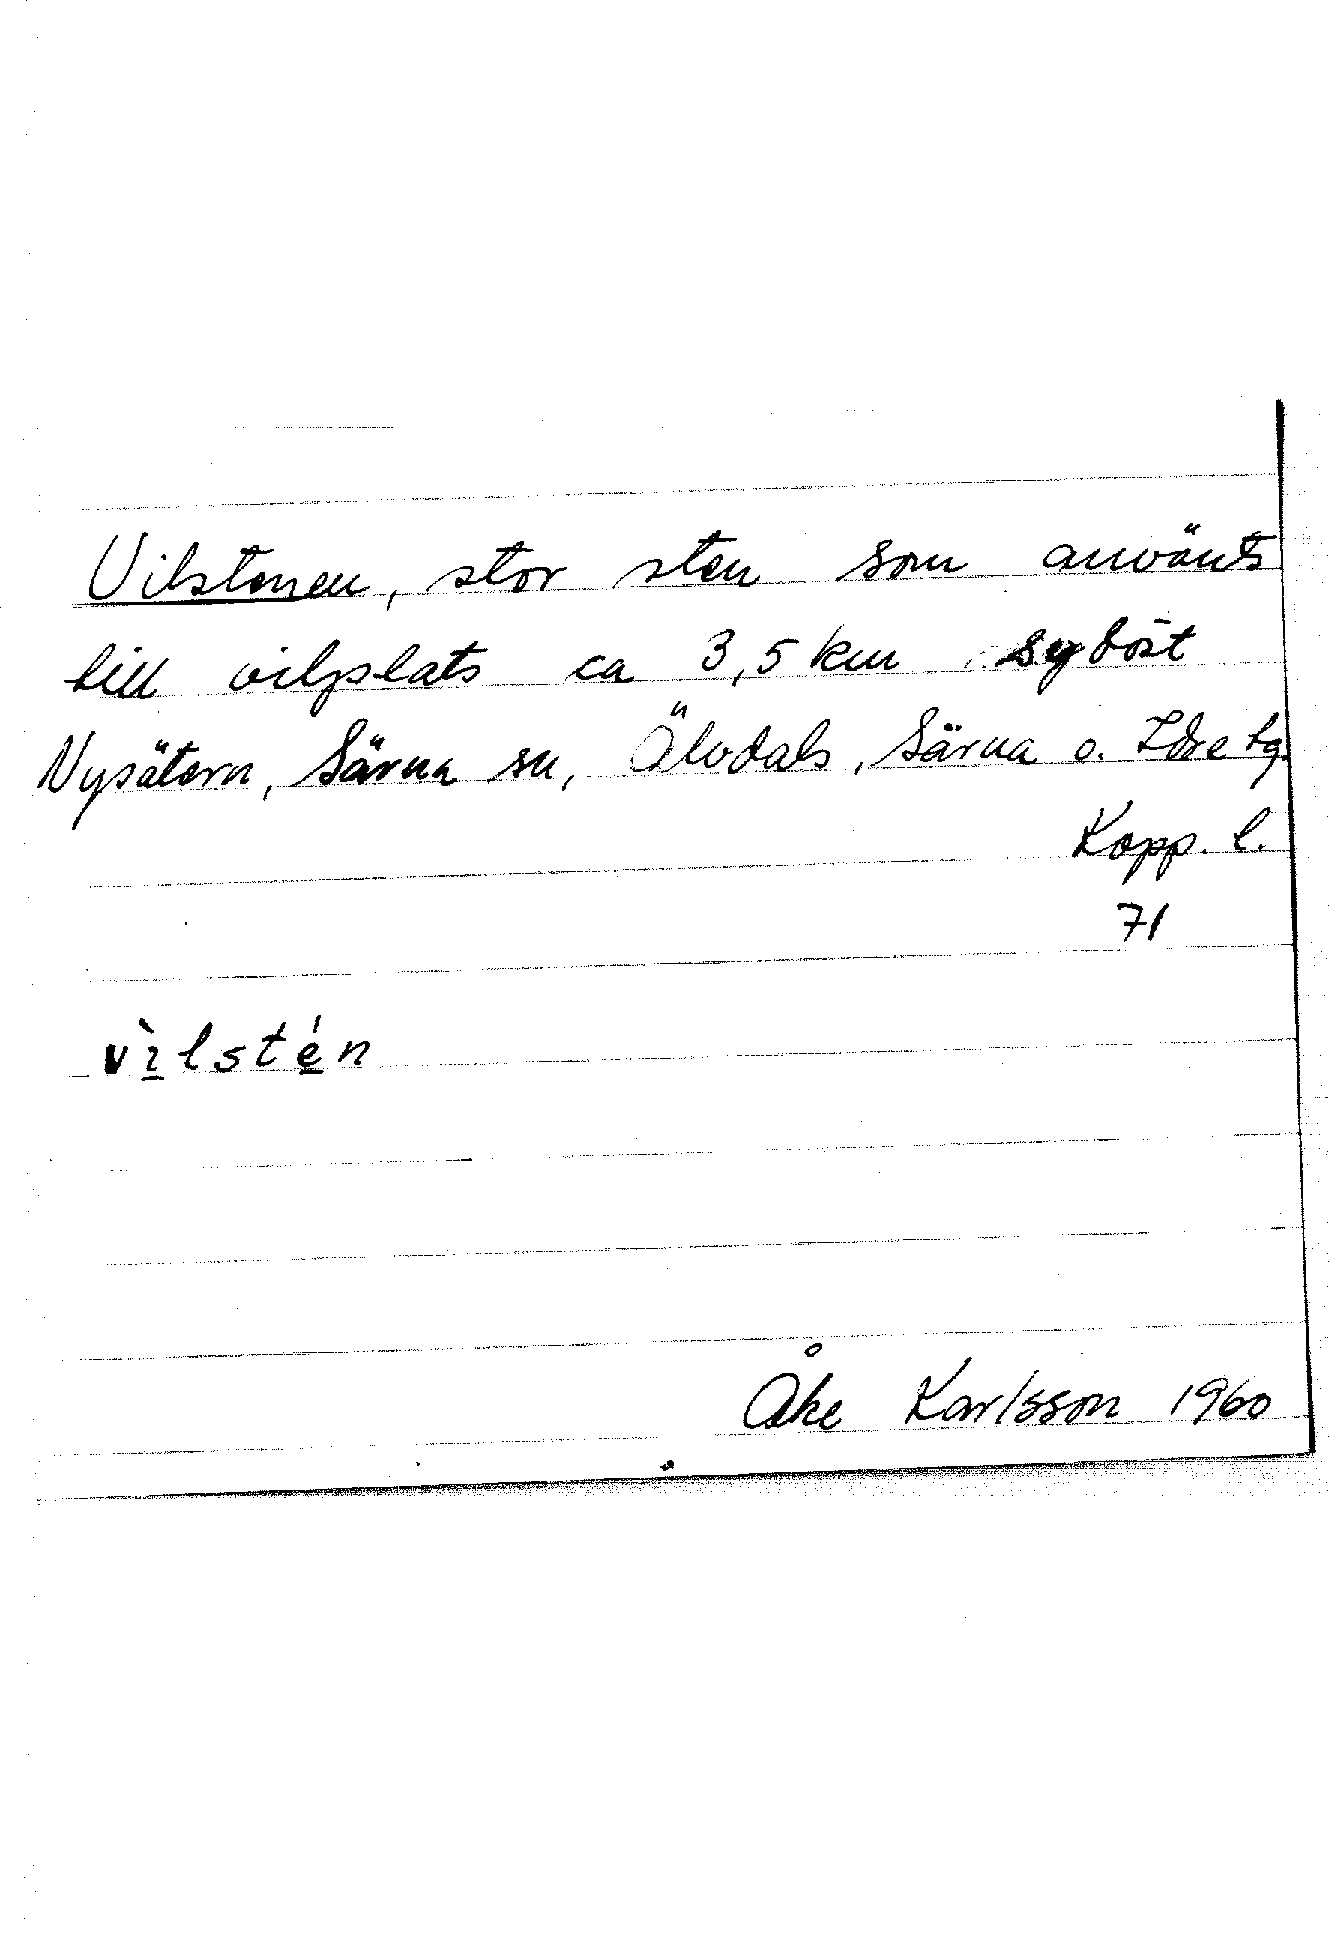 Vilstenen, stor sten som använts
till vilplats ca 3,5 km sydöst
Nysätern, Särna sn, Älvdals, Särna o. Idre tg.
Kopp. l.
71
vı̲̀lsté̲n
Åke Karlsson 1960